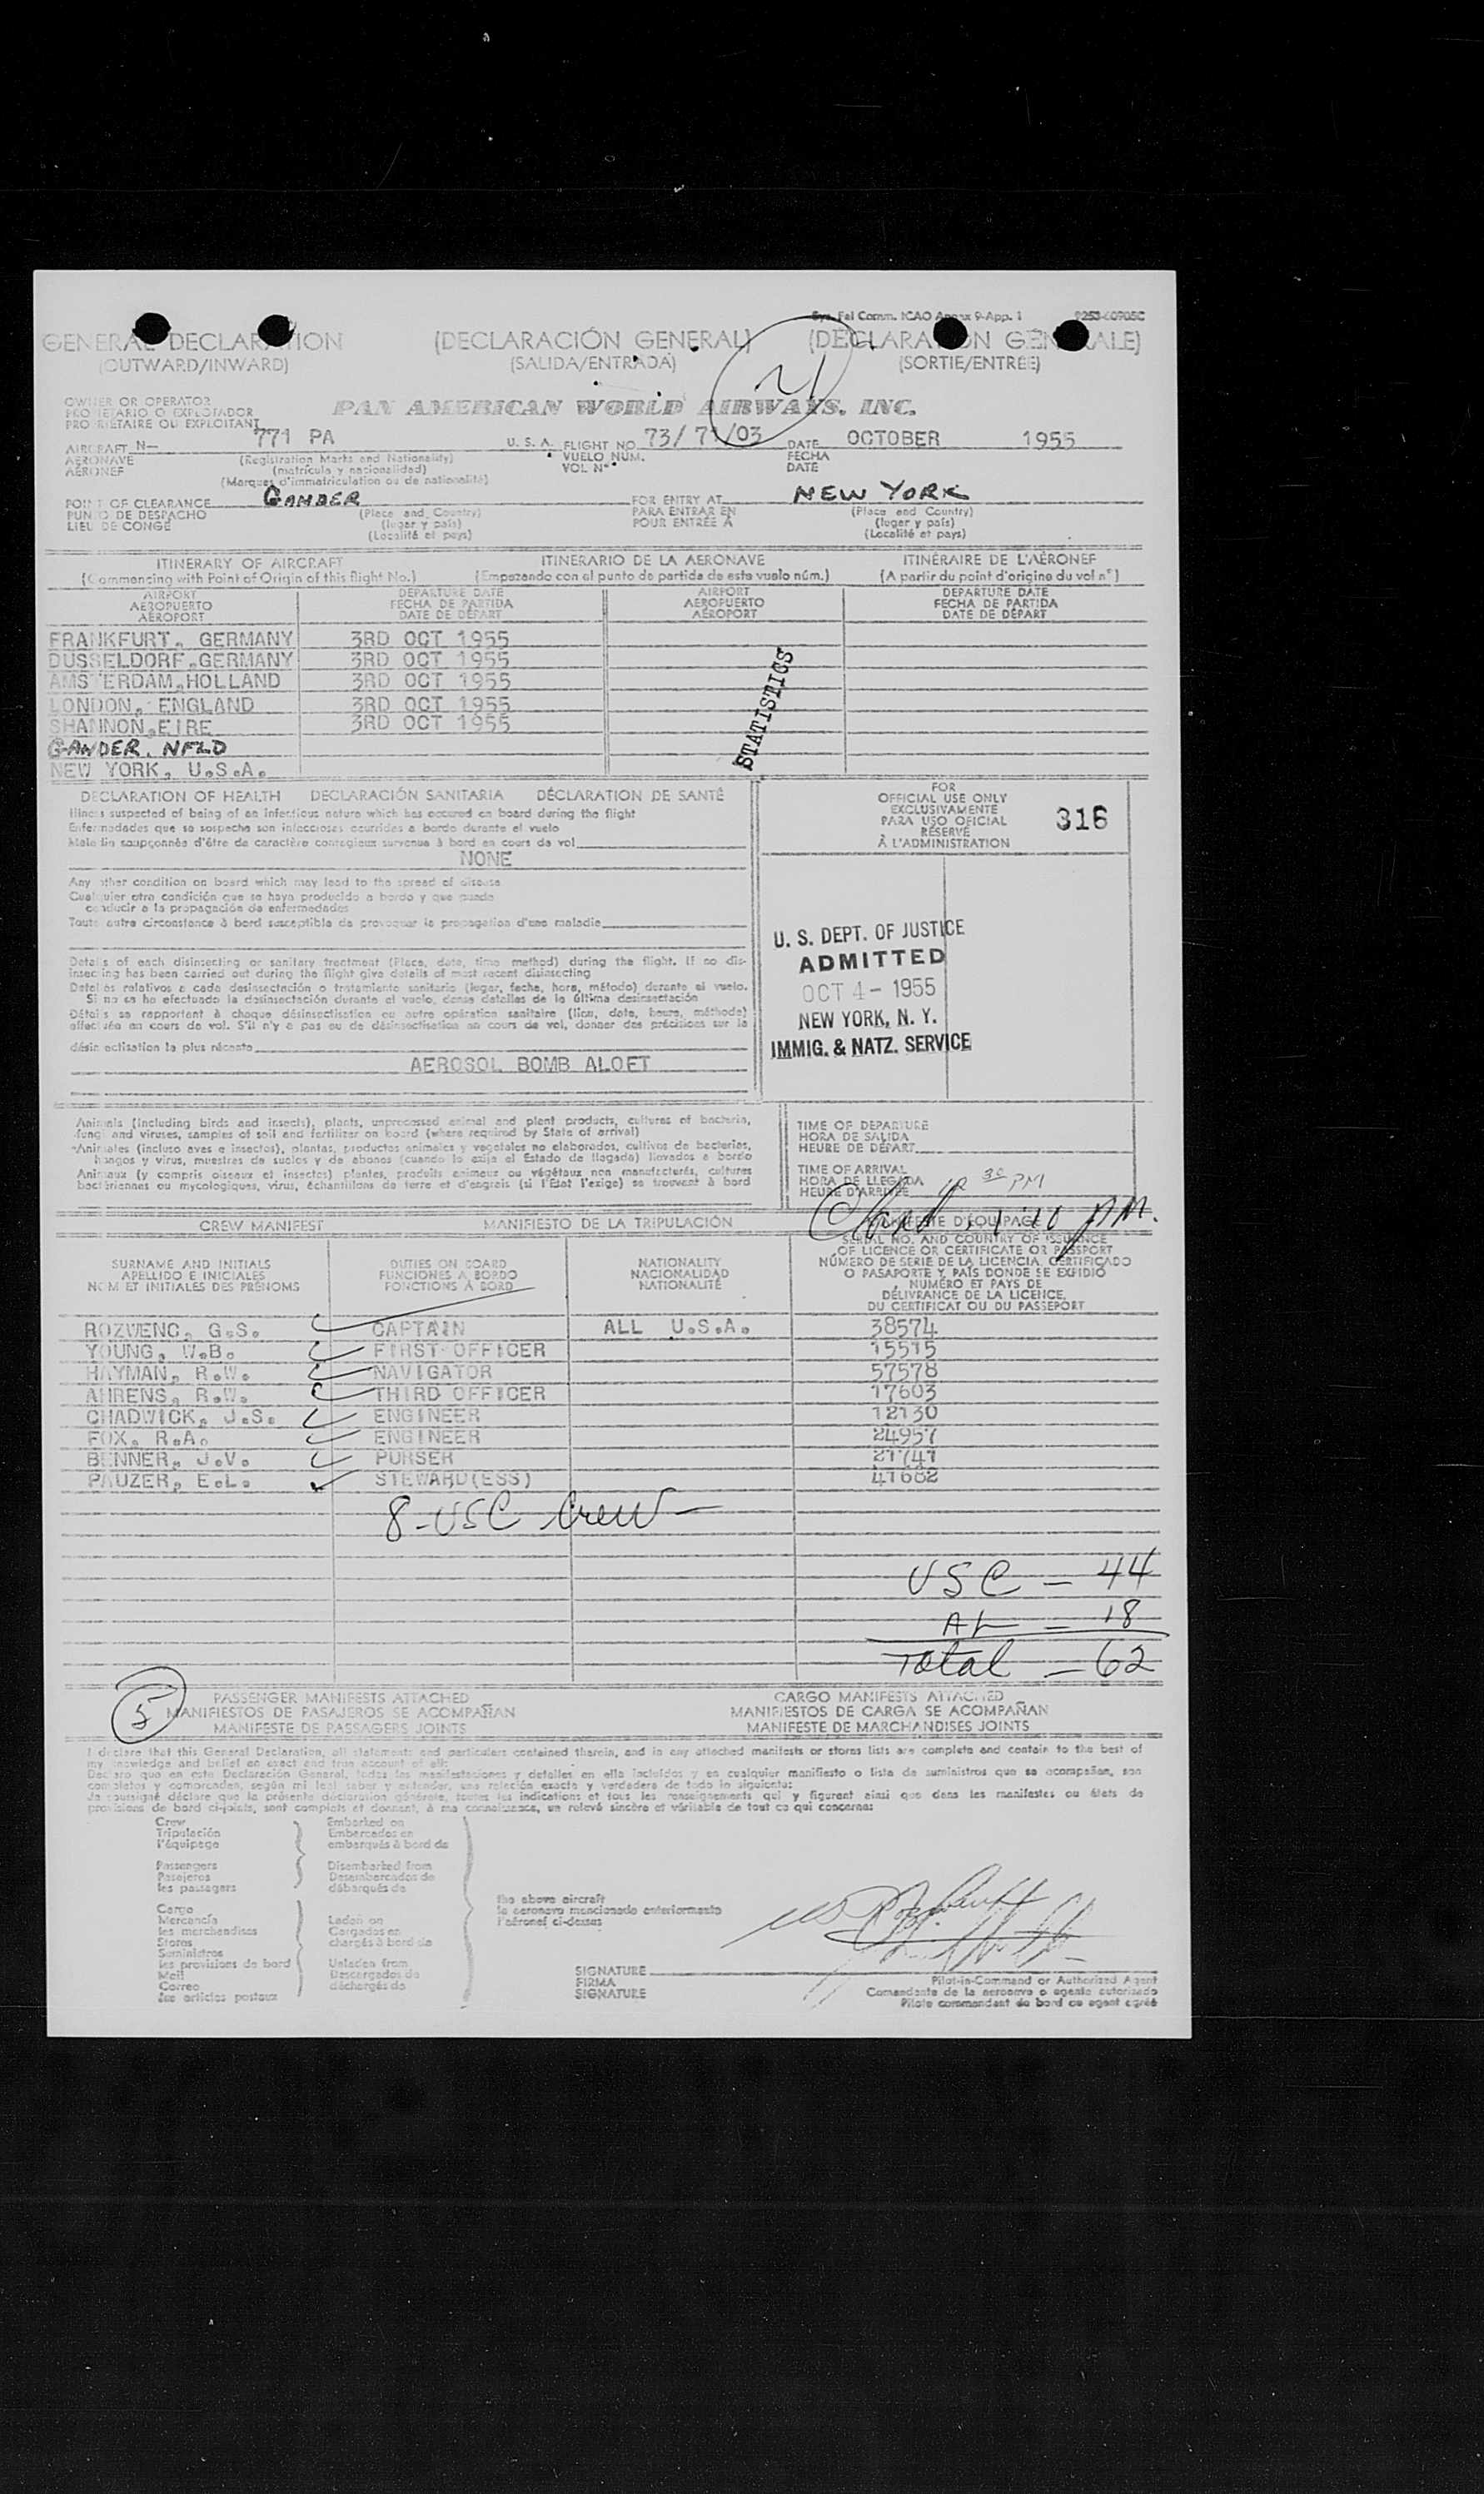 Sys. Fal Comm. ICAO Annex 9-App. 1
GENERAL DECLARATION (DECLARACIÓN GENERAL) (DÉCLARATION GÉNÉRALE)
(OUTWARD/INWARD) (SALIDA/ENTRADA) (SORTIE/ENTRÉE)
21
OWNER OR OPERATOR
PROPIETARIO O EXPLOTADOR
PROPRIÉTAIRE OU EXPLOITANT
PAN AMERICAN WORLD AIRWAYS, INC.
AIRCRAFT N— 771 PA U. S. A. FLIGHT NO. 73/71/03 DATE OCTOBER 1955
AERONAVE (Registration Marks and Nationality) VUELO NUM. FECHA
AÉRONEF (matrícula y nacionalidad) VOL Nº DATE
(Marques d'immatriculation ou de nationalité)
POINT OF CLEARANCE GANDER FOR ENTRY AT NEW YORK
PUNTO DE DESPACHO (Place and Country) PARA ENTRAR EN (Place and Country)
LIEU DE CONGÉ (lugar y país) POUR ENTRÉE À (lugar y país)
(Localité et pays) (Localité et pays)
ITINERARY OF AIRCRAFT ITINERARIO DE LA AERONAVE ITINÉRAIRE DE L'AÉRONEF
(Commencing with Point of Origin of this flight No.) (Empezando con el punto de partida de este vuelo núm.) (A partir du point d'origine du vol nº)
AIRPORT DEPARTURE DATE AIRPORT DEPARTURE DATE
AEROPUERTO FECHA DE PARTIDA AEROPUERTO FECHA DE PARTIDA
AÉROPORT DATE DE DÉPART AÉROPORT DATE DE DÉPART
FRANKFURT, GERMANY 3RD OCT 1955
DUSSELDORF, GERMANY 3RD OCT 1955
AMSTERDAM, HOLLAND 3RD OCT 1955
LONDON, ENGLAND 3RD OCT 1955
SHANNON, EIRE 3RD OCT 1955
GANDER. NFLD
NEW YORK, U.S.A.
STATISTICS
DECLARATION OF HEALTH DECLARACIÓN SANITARIA DÉCLARATION DE SANTÉ
Illness suspected of being of an infectious nature which has occured on board during the flight
Enfermedades que se sospecha son infecciosas ocurridas a bordo durante el vuelo
Maladies soupçonnés d'être de caractère contagieux survenue à bord en cours de vol
NONE
Any other condition on board which may lead to the spread of disease
Cualquier otra condición que se haya producido a bordo y que pueda
conducir a la propagación de enfermedades
Toute autre circonstance à bord susceptible de provoquer la propagation d'une maladie
Details of each disinsecting or sanitary treatment (Place, date, time method) during the flight. If no dis-
insecting has been carried out during the flight give details of most recent disinsecting
Detalles relativos a cada desinsectación o tratamiento sanitario (lugar, fecha, hora, método) durante el vuelo.
Si no se ha efectuado la desinsectación durante el vuelo, dense detalles de la última desinsectación
Détails se rapportent à chaque désinsectisation ou autre opération sanitaire (lieu, date, heure, méthode)
effectuée en cours de vol. S'il n'y a pas eu de désinsectisation en cours de vol, donner des précisions sur la
désinsectisation la plus récente
AEROSOL BOMB ALOFT
FOR
OFFICIAL USE ONLY
EXCLUSIVAMENTE
PARA USO OFICIAL
RÉSERVÉ
À L'ADMINISTRATION
316
U. S. DEPT. OF JUSTICE
ADMITTED
OCT 4 - 1955
NEW YORK, N. Y.
IMMIG. & NATZ. SERVICE
Animals (including birds and insects), plants, unprocessed animal and plant products, cultures of bacteria,
fungi and viruses, samples of soil and fertilizer on board (where required by State of arrival)
Animales (incluso aves e insectos), plantas, productos animales y vegetales no elaborados, cultivos de bacterias,
hongos y virus, muestras de suelos y de abonos (cuando lo exija el Estado de llegada) llevados a bordo
Animaux (y compris oiseaux et insectes) plantes, produits animaux ou végétaux non manufacturés, cultures
bactériennes ou mycologiques, virus, échantillons de terre et d'engrais (si l'État l'exige) se trouvent à bord
TIME OF DEPARTURE
HORA DE SALIDA
HEURE DE DÉPART
TIME OF ARRIVAL
HORA DE LLEGADA
HEURE D'ARRIVÉE
PM
PM.
CREW MANIFEST MANIFIESTO DE LA TRIPULACIÓN MANIFESTE D'ÉQUIPAGE
SURNAME AND INITIALS DUTIES ON BOARD NATIONALITY SERIAL NO. AND COUNTRY OF ISSUANCE
APELLIDO E INICIALES FUNCIONES A BORDO NACIONALIDAD OF LICENCE OR CERTIFICATE OR PASSPORT
NOM ET INITIALES DES PRÉNOMS FONCTIONS À BORD NATIONALITÉ NÚMERO DE SERIE DE LA LICENCIA, CERTIFICADO
O PASAPORTE Y PAÍS DONDE SE EXPIDIÓ
NUMÉRO ET PAYS DE
DÉLIVRANCE DE LA LICENCE,
DU CERTIFICAT OU DU PASSEPORT
ROZWENC, G.S. CAPTAIN ALL U.S.A. 38574
YOUNG, W.B. FIRST OFFICER 15515
HAYMAN, R.W. NAVIGATOR 57578
AHRENS, R.W. THIRD OFFICER 17603
CHADWICK, J.S. ENGINEER 12130
FOX, R.A. ENGINEER 24957
BENNER, J.V. PURSER 21741
PAUZER, E.L. STEWARD(ESS) 41682
8-USC Crew
USC — 44
AL — 18
Total — 62
5
PASSENGER MANIFESTS ATTACHED CARGO MANIFESTS ATTACHED
MANIFIESTOS DE PASAJEROS SE ACOMPAÑAN MANIFIESTOS DE CARGA SE ACOMPAÑAN
MANIFESTE DE PASSAGERS JOINTS MANIFESTE DE MARCHANDISES JOINTS
I declare that this General Declaration, all statements and particulars contained therein, and in any attached manifests or stores lists are complete and contain to the best of
my knowledge and belief an exact and true account of all:
Declaro que en esta Declaración General, todas las manifestaciones y detalles en ella incluidos y en cualquier manifiesto o lista de suministros que se acompañan, son
completos y comprenden, según mi leal saber y entender, una relación exacta y verdadera de todo lo siguiente:
Je soussigné déclare que la présente déclaration générale, toutes les indications et tous les renseignements qui y figurent ainsi que dans les manifestes ou états de
provisions de bord ci-joints, sont complets et donnent, à ma connaissance, un relevé sincère et véritable de tout ce qui concerne:
Crew Embarked on
Tripulación Embarcados en
l'équipage embarqués à bord de
Passengers Disembarked from
Pasajeros Desembarcados de
les passagers débarqués de
the above aircraft
la aeronave mencionada anteriormente
l'aéronef ci-dessus
Cargo
Mercancía Laden on
les merchandises Cargados en
Stores chargés à bord de
Suministros
les provisions de bord Unladen from
Mail Descargados de
Correo déchargés de
les articles postaux
SIGNATURE
FIRMA
SIGNATURE
Pilot-in-Command or Authorized Agent
Comandante de la aeronave o agente autorizado
Pilote commandant de bord ou agent agréé